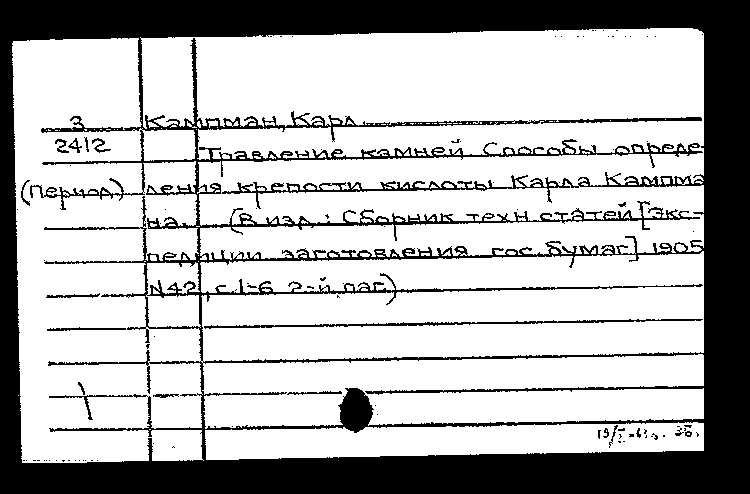 3 Кампман, Карл.
2412 Травление камней Способы опреде-
(период.) ления крепости кислоты Карла Кампма
на. (В изд.: Сборник техн. статей [Экс-
педиции заготовления гос. бумаг] 1905
N42, с.1-6 2-й паг.)